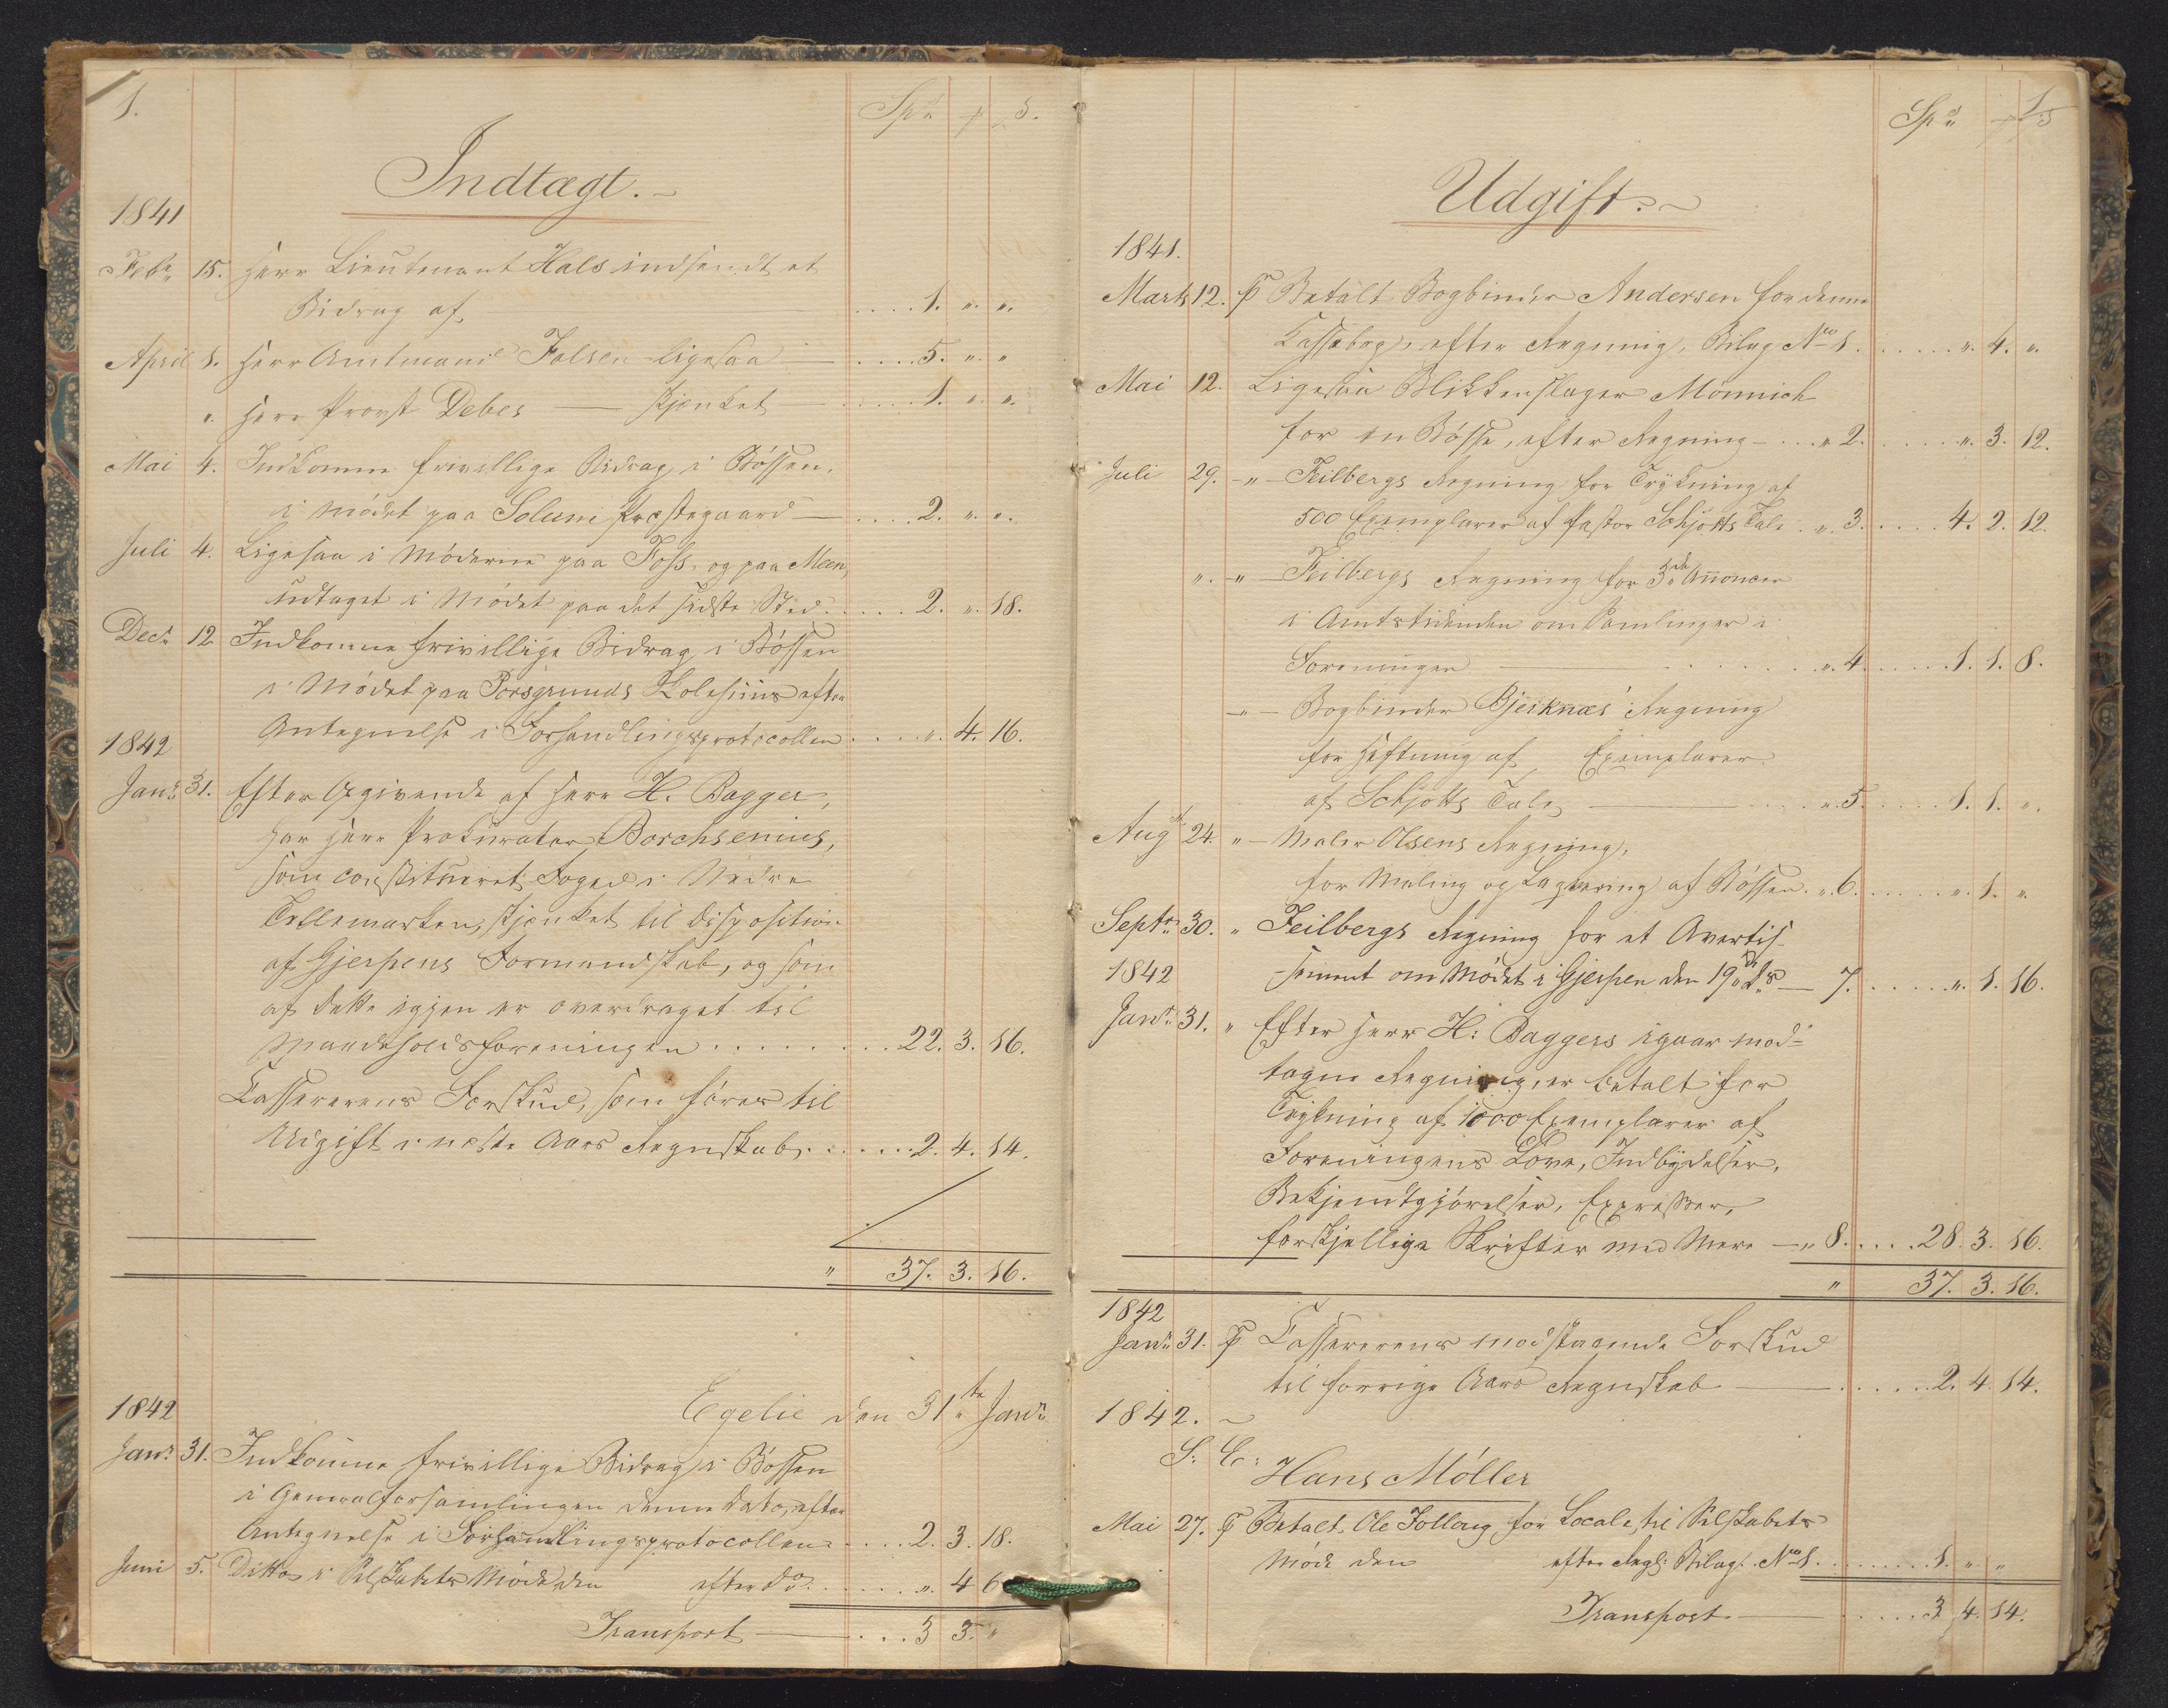 1.
Spd ₰ s.
Indtægt.
1841
Febr. 15. Herr Lieutenant Hals indsendt et
Bidrag af .... 1. " "
April 1. Herr Amtmand Falsen ligesaa .... 5. " "
" Herr Provst Debes — skjenket — .... 1. " "
Mai 4. Indkomne frivillige Bidrag i Bössen,
i Mödet paa Solum Præstegaard — .... 2. " "
Juli 4. Ligesaa i Möderne paa Foss, og paa Meen,
udtaget i Mödet paa det sidste Sted .... 2. " 18.
Decr. 12 Indkomne frivillige Bidrag i Bössen
i Mödet paa Porsgrunds Skolehuus efter
Antegnelse i Forhandlingsprotocollen .... " 4. 16.
1842
Janr. 31. Efter Opgivende af Herr H. Bagger,
har Herr Prokurator Borchsenius,
som constitueret Foged i Nedre
Tellemarken, skjenket til Disposition
af Gjerpens Formandskab, og som
af dette igjen er overdraget til
Maadeholdsforeningen ........ 22. 3. 16.
Cassererens Forskud, som föres til
Udgift i næste Aars Regnskab ...... 2. 4. 14.
" 37. 3. 16.
Egelie den 31te Janr.
1842
Janr. 31. Indkomne frivillige Bidrag i Bössen
i Generalforsamlingen denne Dato, efter
Antegnelse i Forhandlingsprotocollen .... 2. 3. 18.
Juni 5. Ditto i Selskabets Möde den efter do ...... " 4 6
Transport — .... 3 3. "
Spd ₰ s
Udgift.
1841.
Marts 12. ₽ Betalt Bogbinder Andersen for denne
Cassebog, efter Regning, Bilag No 1. ...... " 4. "
Mai 12. Ligesaa Blikkenslager Mönnich
for en Bösse, efter Regning — ... " 2. ...... " 3. 12.
Juli 29. — " — Feilbergs Regning for Trykning af
500 Exemplarer af Pastor Schjötts Tale . " 3. .... 4. 2. 12.
" — " — Feilbergs Regning for 3de Annoncer
i Amtstidenden om Samlinger i
Foreningen — ...... " 4. ..... 1. 1. 8.
— " — Bogbinder Bjerknæs' Regning
for Heftning af Exemplarer
af Schjötts Tale — .... " 5. .... 1. 1. "
Augst 24. " — Maler Olsens Regning,
for Maling og Laquering af Bössen . " 6. ...... " 1. "
Septr. 30. " Feilbergs Regning for et Avertis-
1842
sement om Mödet i Gjerpen den 19de ds — 7. ...... " 1. 16.
Janr. 31. " Efter Herr H: Baggers igaar mod-
tagne Regning, er betalt for
Trykning af 1000 Exemplarer af
Foreningens Love, Indbydelser,
Bekjendtgjörelser, Expresser,
forskjellige Skrifter med Mere — " 8. .... 28. 3. 16.
" 37. 3. 16.
1842
Janr. 31. ₽ Cassererens modstaaende Forskud
til forrige Aars Regnskab — ...... 2. 4. 14.
1842.
S: E:
Hans Möller
Mai 27. ₽ Betalt Ole for Locale til Selskabets
Möde den efter Regg. Bilag No 1. ........ 1. " "
Transport. — ..... 3 4. 14.